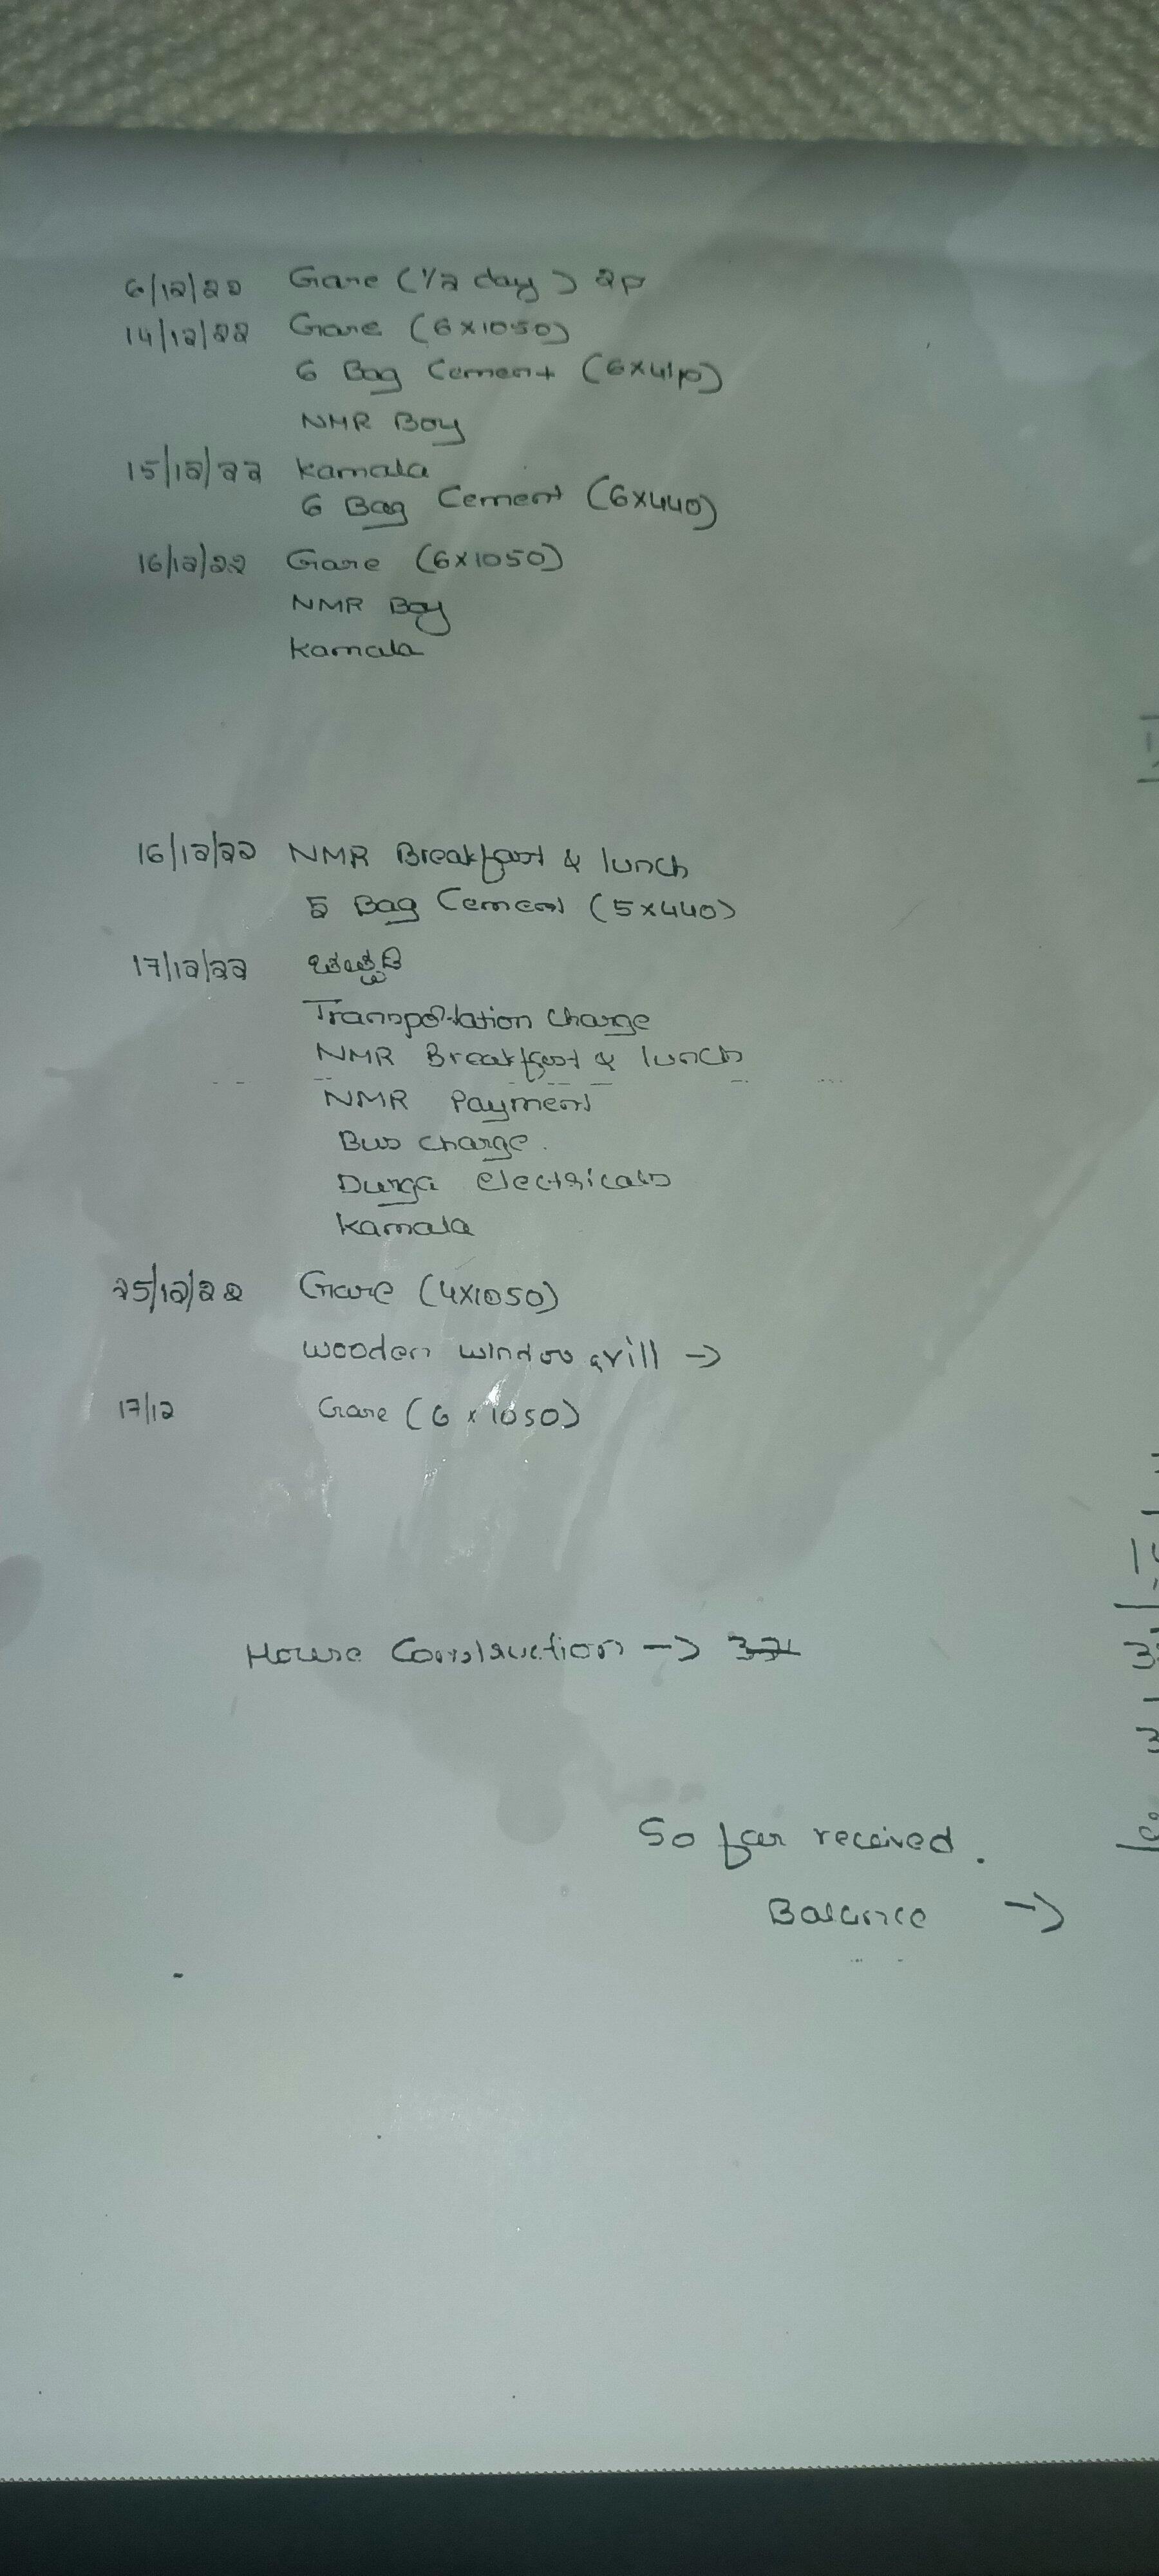 6/12/22 Gare (1/2 day) 2p
14/12/22 Gare (6x1050)
6 Bag Cement (6x410)
NMR Boy
15/12/22 Kamala
6 Bag Cement (6x440)
16/12/22 Gare (6x1050)
NMR Boy
Kamala
16/12/22 NMR Breakfast & lunch
5 Bag Cement (5x440)
17/12/22
Transportation Charge
NMR Breakfast & lunch
NMR Payment
Bus charge.
Durga electricals
Kamala
25/12/22 Gare (4x1050)
Wooden window grill →
17/12 Gare (6x1050)
House Construction →
So far received.
Balance →